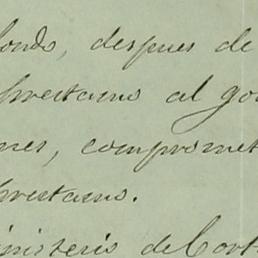 fondo, despues de
prestamo al go
nes, compromet
prestamo.
inisterio de Cort